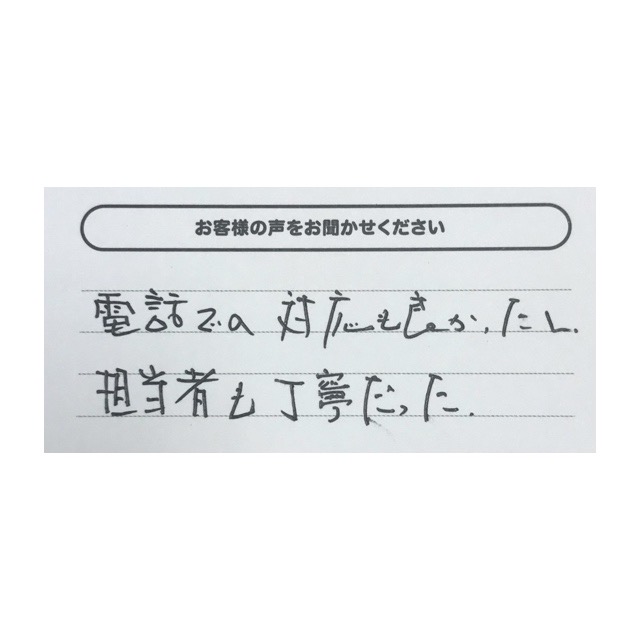 お客様の声をお聞かせください
電話での対応も良かったし、
担当者も丁寧だった。